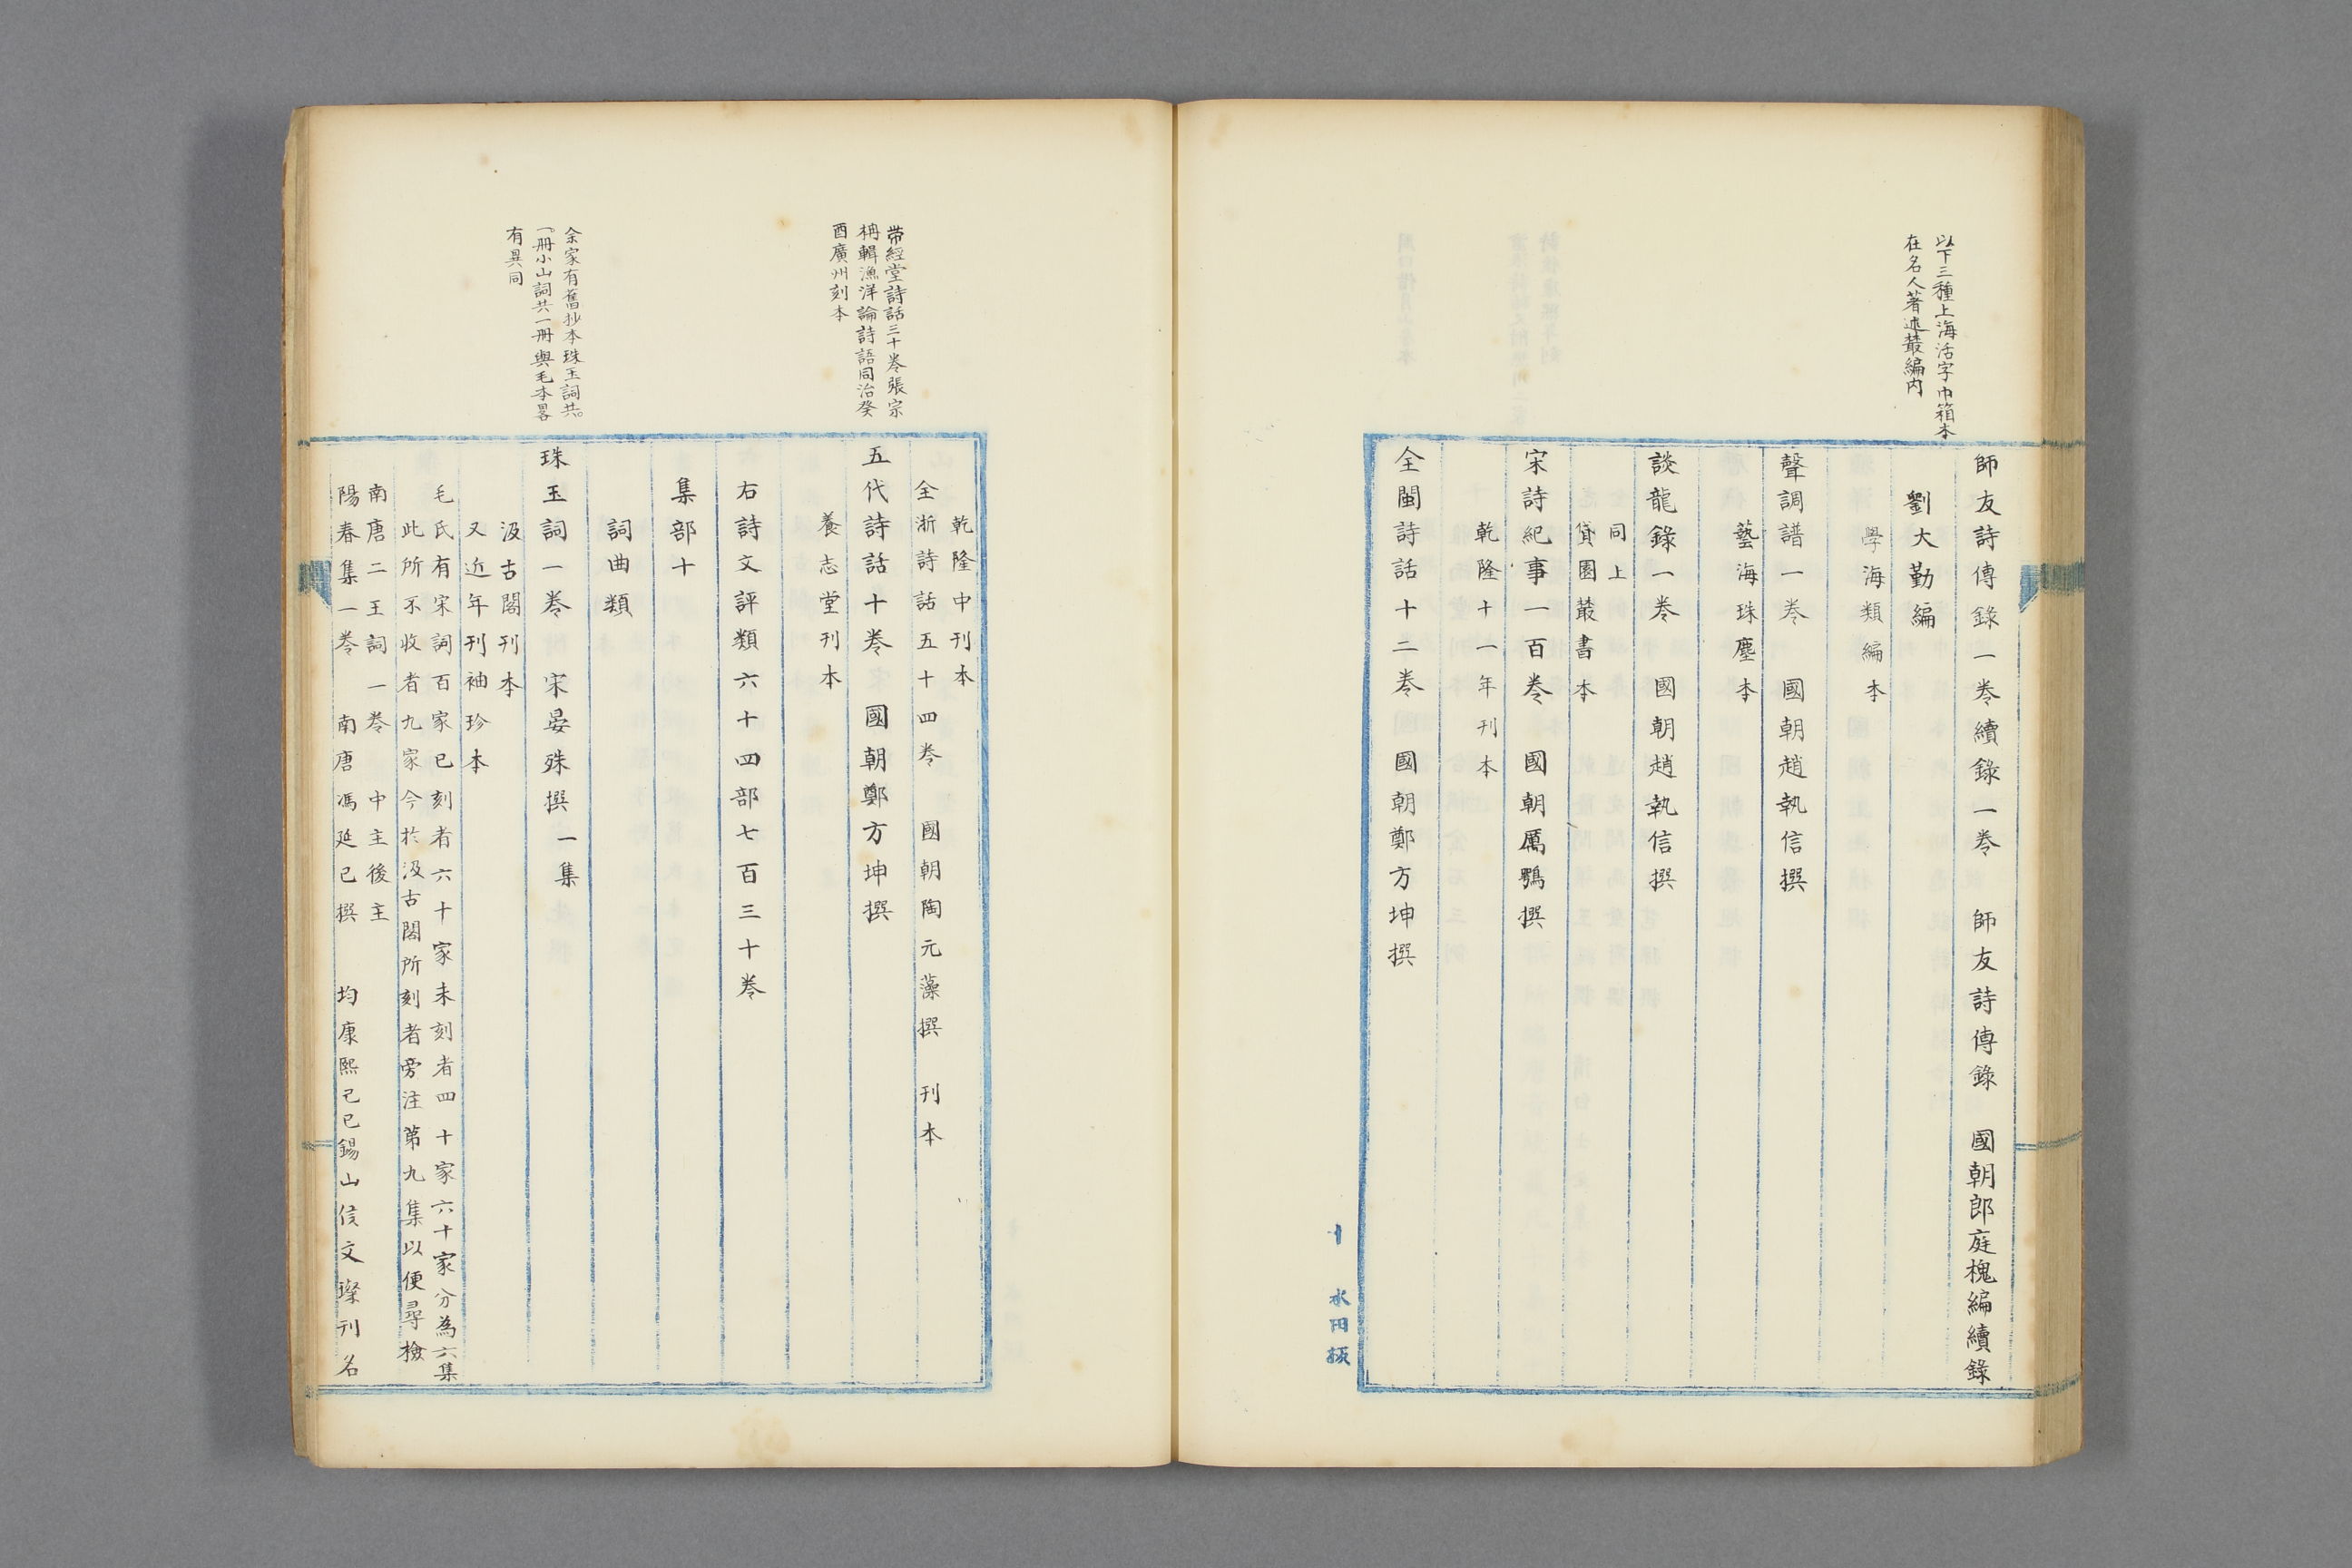 以下三種上海活字巾箱本
在名人著述叢編内
師友詩傳錄一卷續錄一卷 師友詩傳錄 國朝郎庭槐編續錄
劉大勤編
學海類編本
聲調譜一卷 國朝趙執信撰
藝海珠塵本
談龍錄一卷 國朝趙執信撰
同上
貸園叢書本
宋詩紀事一百卷 國朝厲鶚撰
乾隆十一年刊本
全閩詩話十二卷 國朝鄭方坤撰
十
帶經堂詩話三十卷張宗
柟輯漁洋論詩語同治癸
酉廣州刻本
余家有舊抄本珠玉詞共
一冊小山詞共一冊與毛本畧
有異同
乾隆中刊本
全浙詩話五十四卷 國朝陶元藻撰 刊本
五代詩話十卷 國朝鄭方坤撰
養志堂刊本
右詩文評類六十四部七百三十卷
集部十
詞曲類
珠玉詞一卷 宋晏殊撰 一集
汲古閣刊本
又近年刊袖珍本
毛氏有宋詞百家已刻者六十家未刻者四十家六十家分為六集
此所不收者九家今於汲古閣所刻者旁注第九集以便尋檢
南唐二王詞一卷 中主後主
陽春集一卷 南唐馮延已撰 均康熙己巳錫山侯文璨刊名